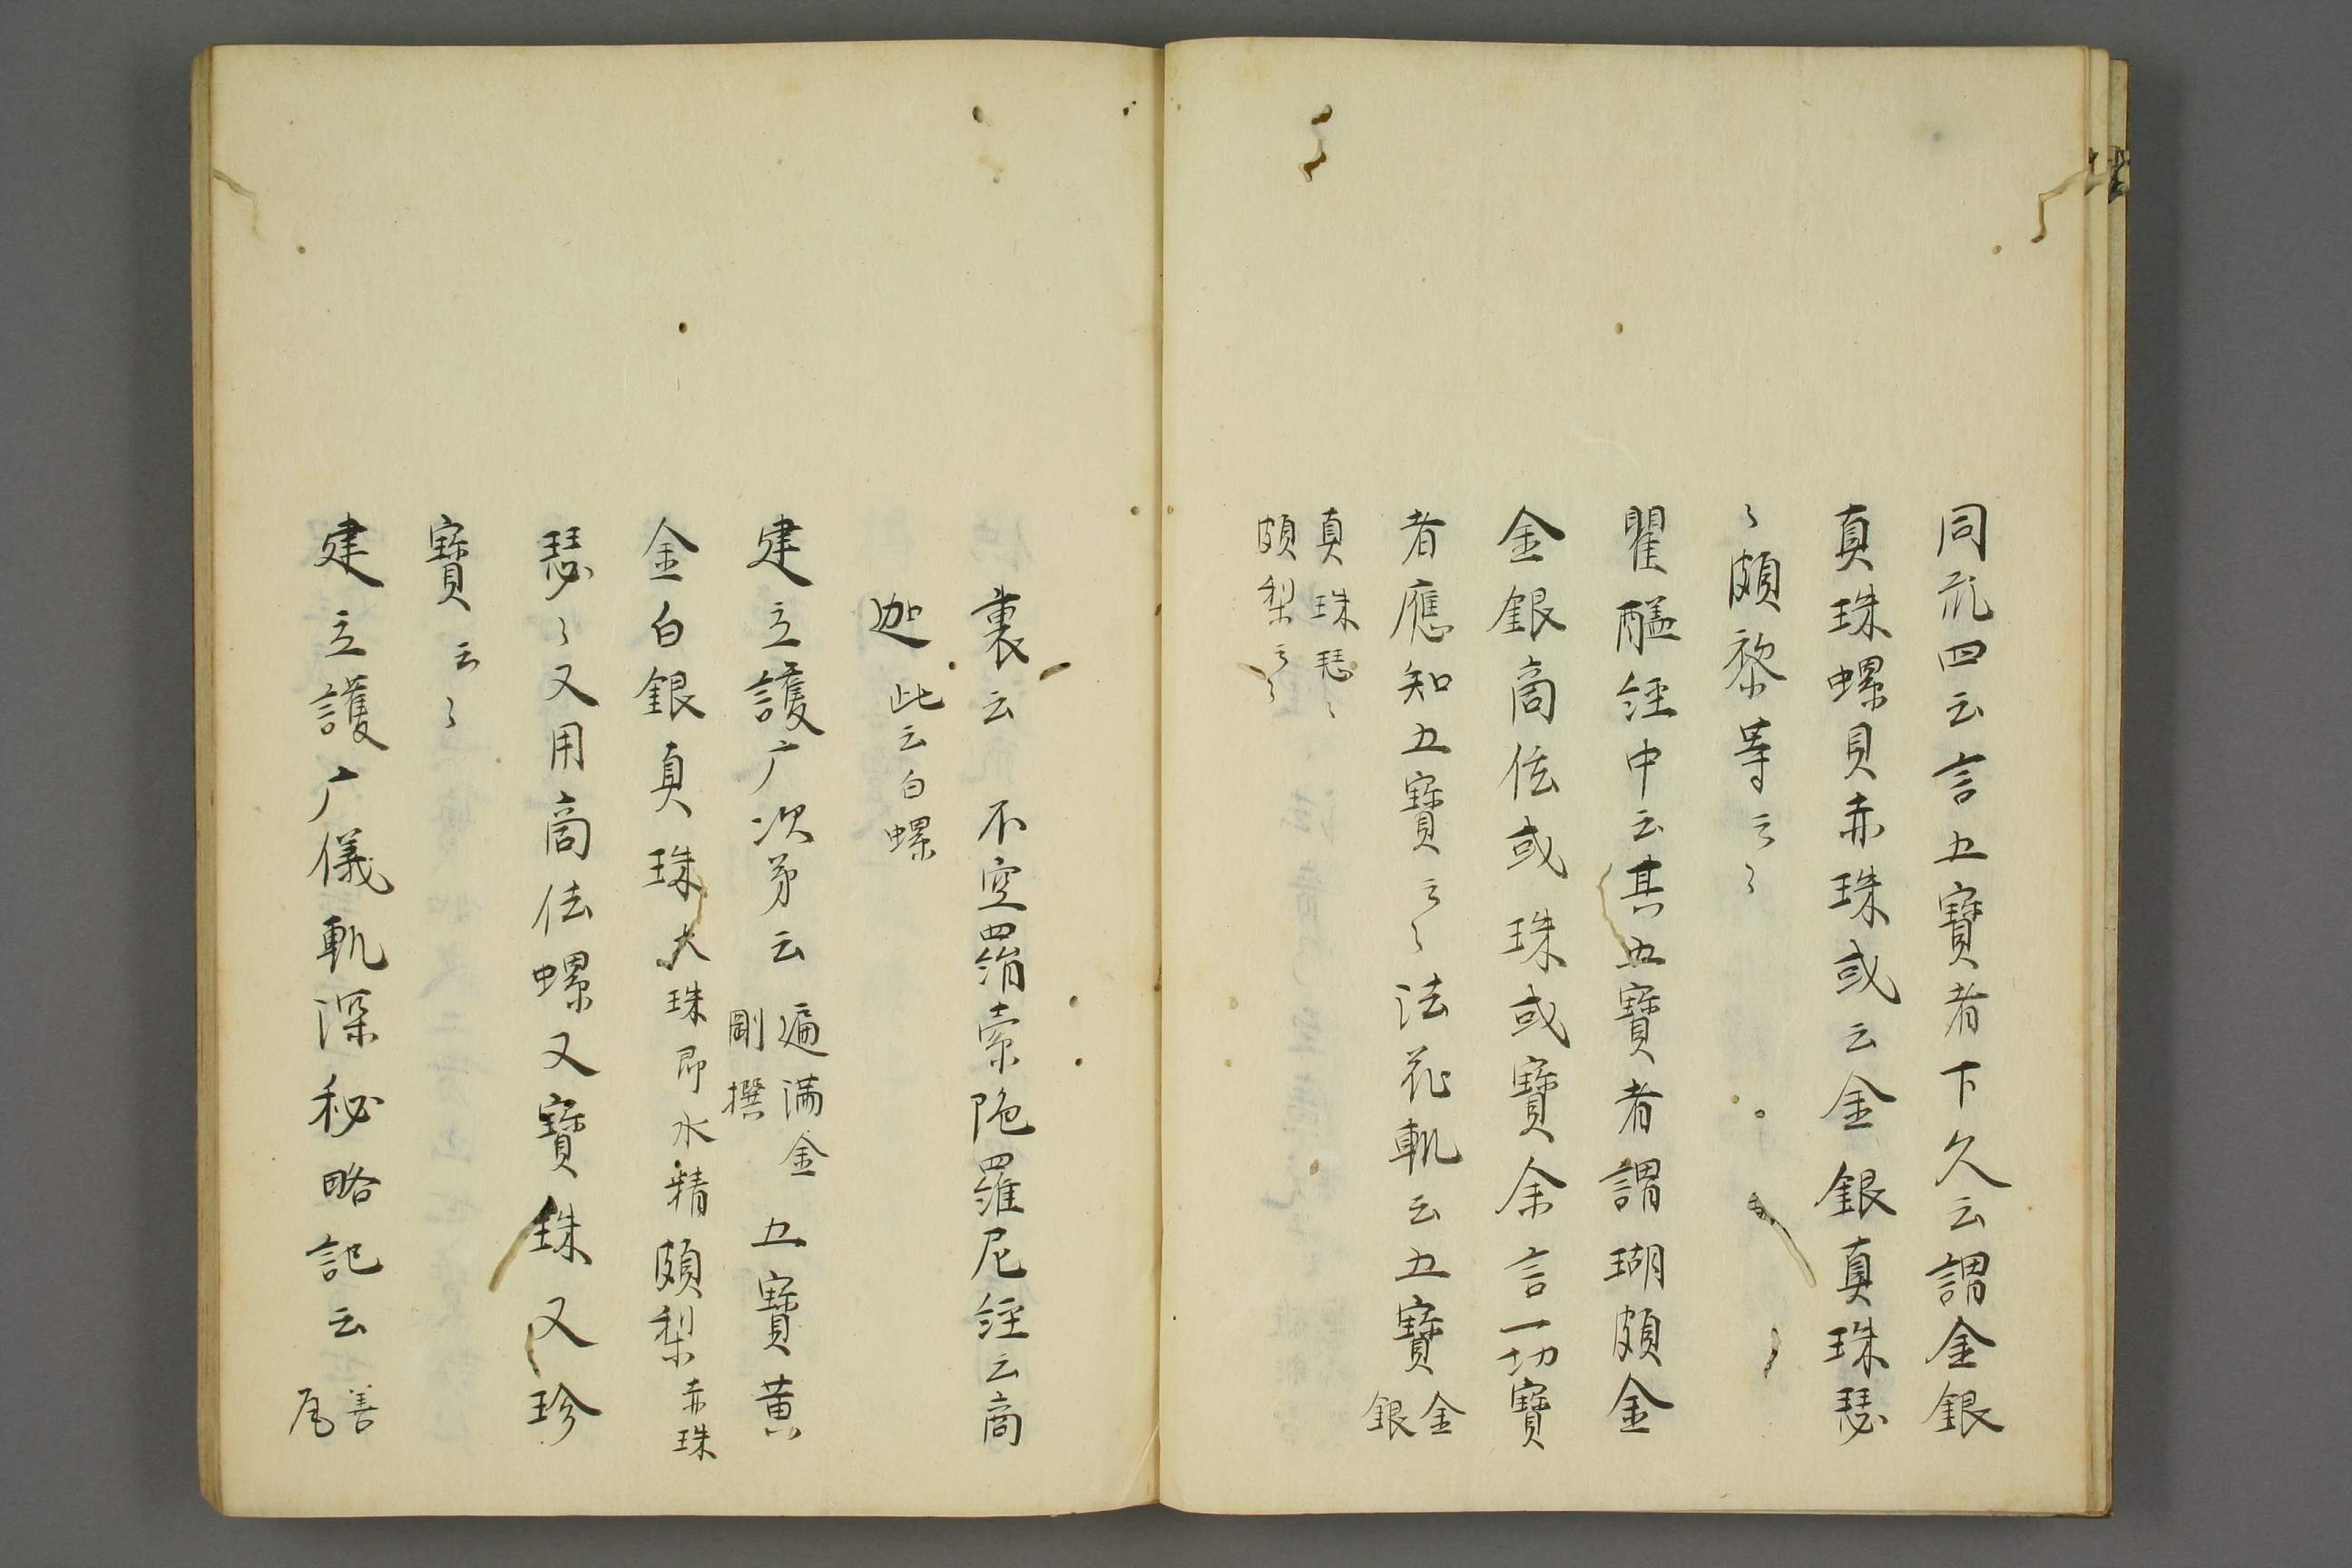 同疏四云言五寶者下久云謂金銀
真珠螺貝赤珠或云金銀真珠瑟
〻頗黎等云〻
瞿醯經中云其五寶者謂瑚頗金
金銀商佉或珠或寶余言一切寶
者應知五寶云〻法花軌云五寶金
銀
真珠瑟〻
頗梨云〻
裏云 不空羂索陁羅尼經云商
迦此云白螺
建立護广次第云遍满金
剛撰五寶黄
金白銀真珠大珠即水精頗梨赤珠
瑟〻又用商佉螺又寶珠又珍
寶云〻
建立護广儀軌深秘略記云善